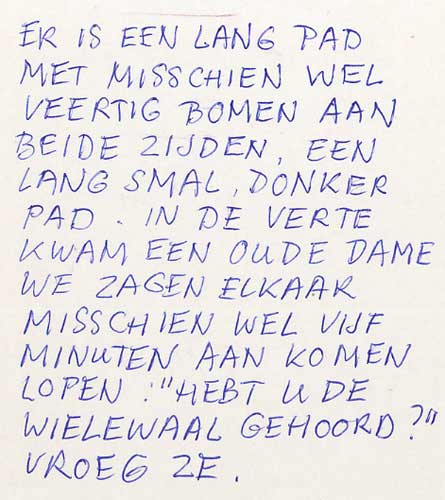 ER IS EEN LANG PAD
MET MISSCHIEN WEL
VEERTIG BOMEN AAN
BEIDE ZIJDEN, EEN
LANG SMAL, DONKER
PAD. IN DE VERTE
KWAM EEN OUDE DAME
WE ZAGEN ELKAAR
MISSCHIEN WEL VIJF
MINUTEN AAN KOMEN
LOPEN: "HEBT U DE
WIELEWAAL GEHOORD?"
VROEG ZE.